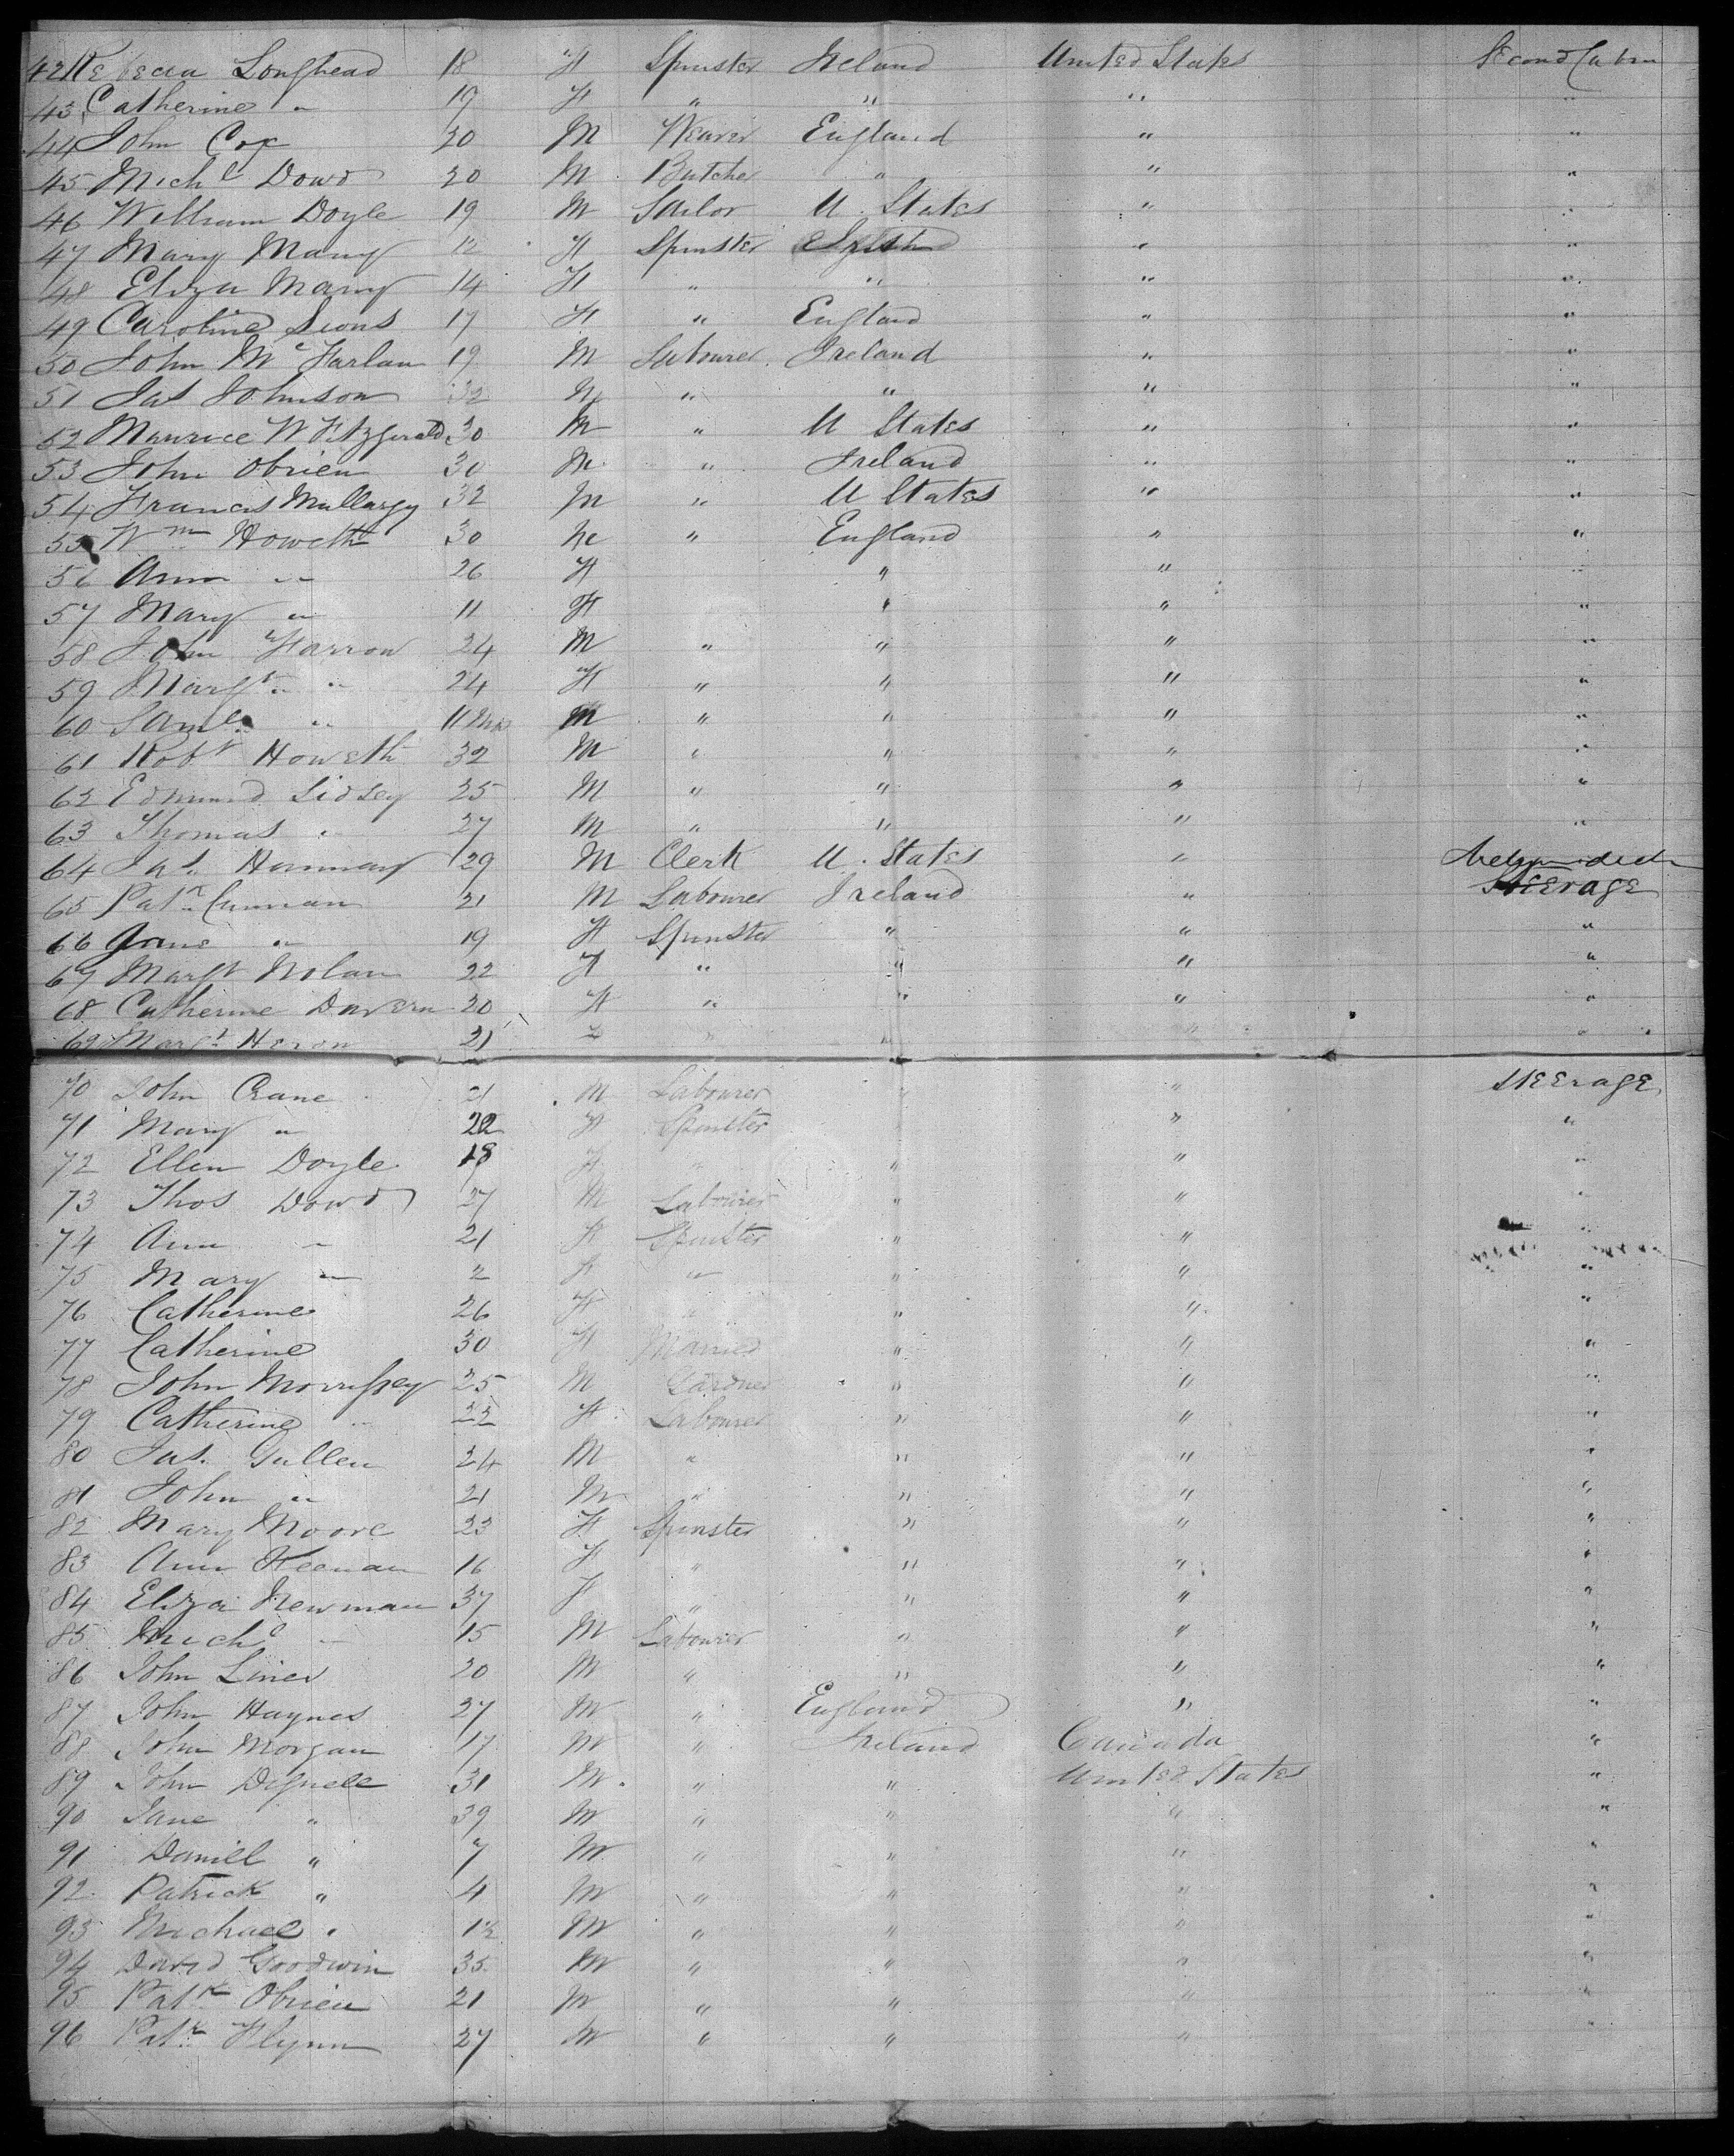 42 Rebecca Loughead 18 F Spinster Ireland United States Second Cabin
43 Catherine " 19 F " " " "
44 John Cox 20 M Weaver England " "
45 Michl Dowd 20 M Butcher " " "
46 William Doyle 19 M Sailor U. States " "
47 Mary Many 12 F Spinster " "
48 Eliza Many 14 F " " " "
49 Caroline 17 F " England " "
50 John McFarlan 19 M Labourer Ireland " "
51 Jas Johnson 32 M " " " "
52 Maurice W Fitzgerald 30 M " U States " "
53 John Obrien 30 M " Ireland " "
54 Francis Mullargy 32 M " U States " "
55 Wm Howeth 30 M " England " "
56 Ann " 26 F " " "
57 Mary " 11 F " " "
58 John Farron 24 M " " " "
59 Margt " 24 F " " " "
60 Saml " 11 Mos M " " " "
61 Robt Howeth 32 M " " " "
62 Edmund Lidsey 25 M " " " "
63 Thomas " 27 M " " " "
64 Jas. Hannary 29 M Clerk U. States "
65 Patk Cunnan 21 M Labourer Ireland " Steerage
66 Jane " 19 F Spinster " " "
67 Margt Nolan 22 F " " " "
68 Catherine Davern 20 F " " " "
69 Margt Heron 21 F " " " "
70 John Crane 21 M Labourer " " Steerage
71 Mary " 22 F Spinster " "
72 Ellen Doyle 18 F " " " "
73 Thos Dowd 27 M Labourer " " "
74 Ann " 21 F Spinster " " "
75 Mary " 2 F " " " "
76 Catherine 26 F " " " "
77 Catherine 30 F Married " " "
78 John Morrissey 25 M Gardner " " "
79 Catherine " 22 F Labourer " " "
80 Jas. Gullen 24 M " " " "
81 John " 21 M " " " "
82 Mary Moore 23 F Spinster " " "
83 Ann Keenan 16 F " " " "
84 Eliza Newman 37 F " " " "
85 Michl " 15 M Labourer " " "
86 John Liner 20 M " " " "
87 John Haynes 27 M " England " "
88 John Morgan 17 M " Ireland Canada "
89 John Dignell 31 M " " United States "
90 Jane " 39 M " " " "
91 Daniel " 7 M " " " "
92 Patrick " 4 M " " " "
93 Michael " M " " " "
94 David Goodwin 35 M " " " "
95 Patk Obrien 21 M " " " "
96 Patk Flynn 27 M " " " "